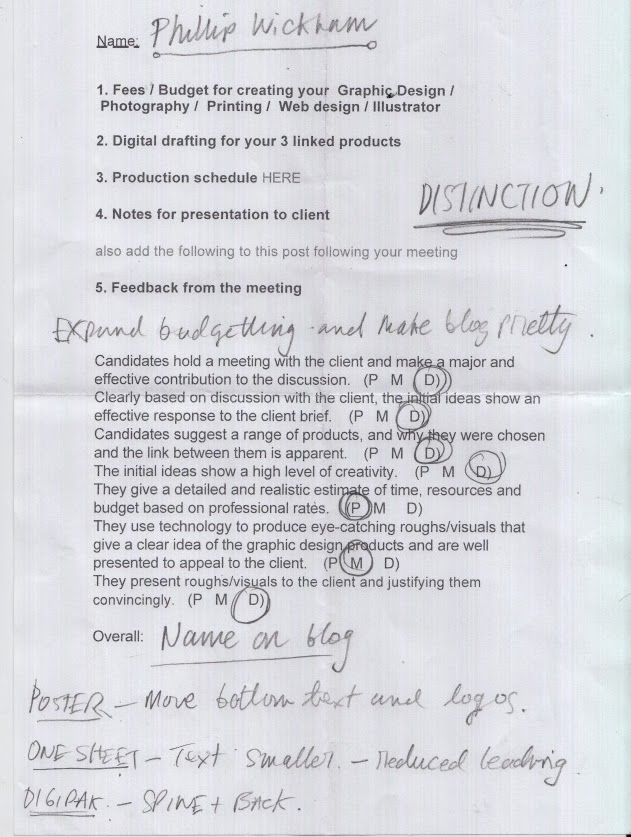 Name: Phillip Wickham
1. Fees / Budget for creating your Graphic Design /
Photography / Printing / Web design / Illustrator
2. Digital drafting for your 3 linked products
3. Production schedule HERE
DISTINCTION.
4. Notes for presentation to client
also add the following to this post following your meeting
5. Feedback from the meeting
Expand budgetting and make blog pretty.
Candidates hold a meeting with the client and make a major and
effective contribution to the discussion. (P M D)
Clearly based on discussion with the client, the initial ideas show an
effective response to the client brief. (P M D)
Candidates suggest a range of products, and why they were chosen
and the link between them is apparent. (P M D)
The initial ideas show a high level of creativity. (P M D)
They give a detailed and realistic estimate of time, resources and
budget based on professional rates. (P M D)
They use technology to produce eye-catching roughs/visuals that
give a clear idea of the graphic design products and are well
presented to appeal to the client. (P M D)
They present roughs/visuals to the client and justifying them
convincingly. (P M D)
Overall: Name on blog
POSTER - Move bottom text and logos.
ONE SHEET - Text smaller. - reduced leading.
DIGIPAK. - SPINE + BACK.